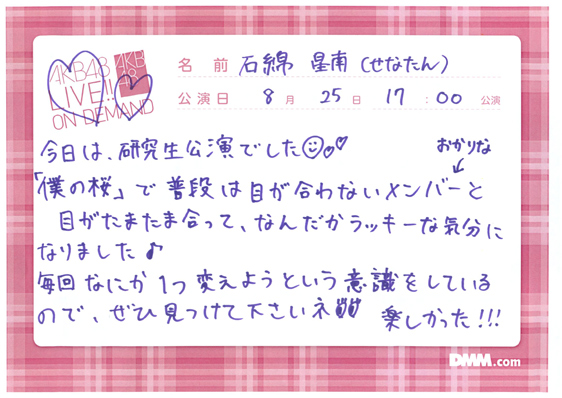 AKB48
LIVE!!
ON DEMAND
AKB
48
名前 石綿 星南(せなたん)
公演日 8月 25日 17:00 公演
今日は、研究生公演でした
おかりな
「僕の桜」で普段は目が合わないメンバーと
目がたまたま合って、なんだかラッキーな気分に
なりました♪
毎回なにか1つ変えようという意識をしている
ので、ぜひ見つけて下さいネ
楽しかった!!!
DMM.com